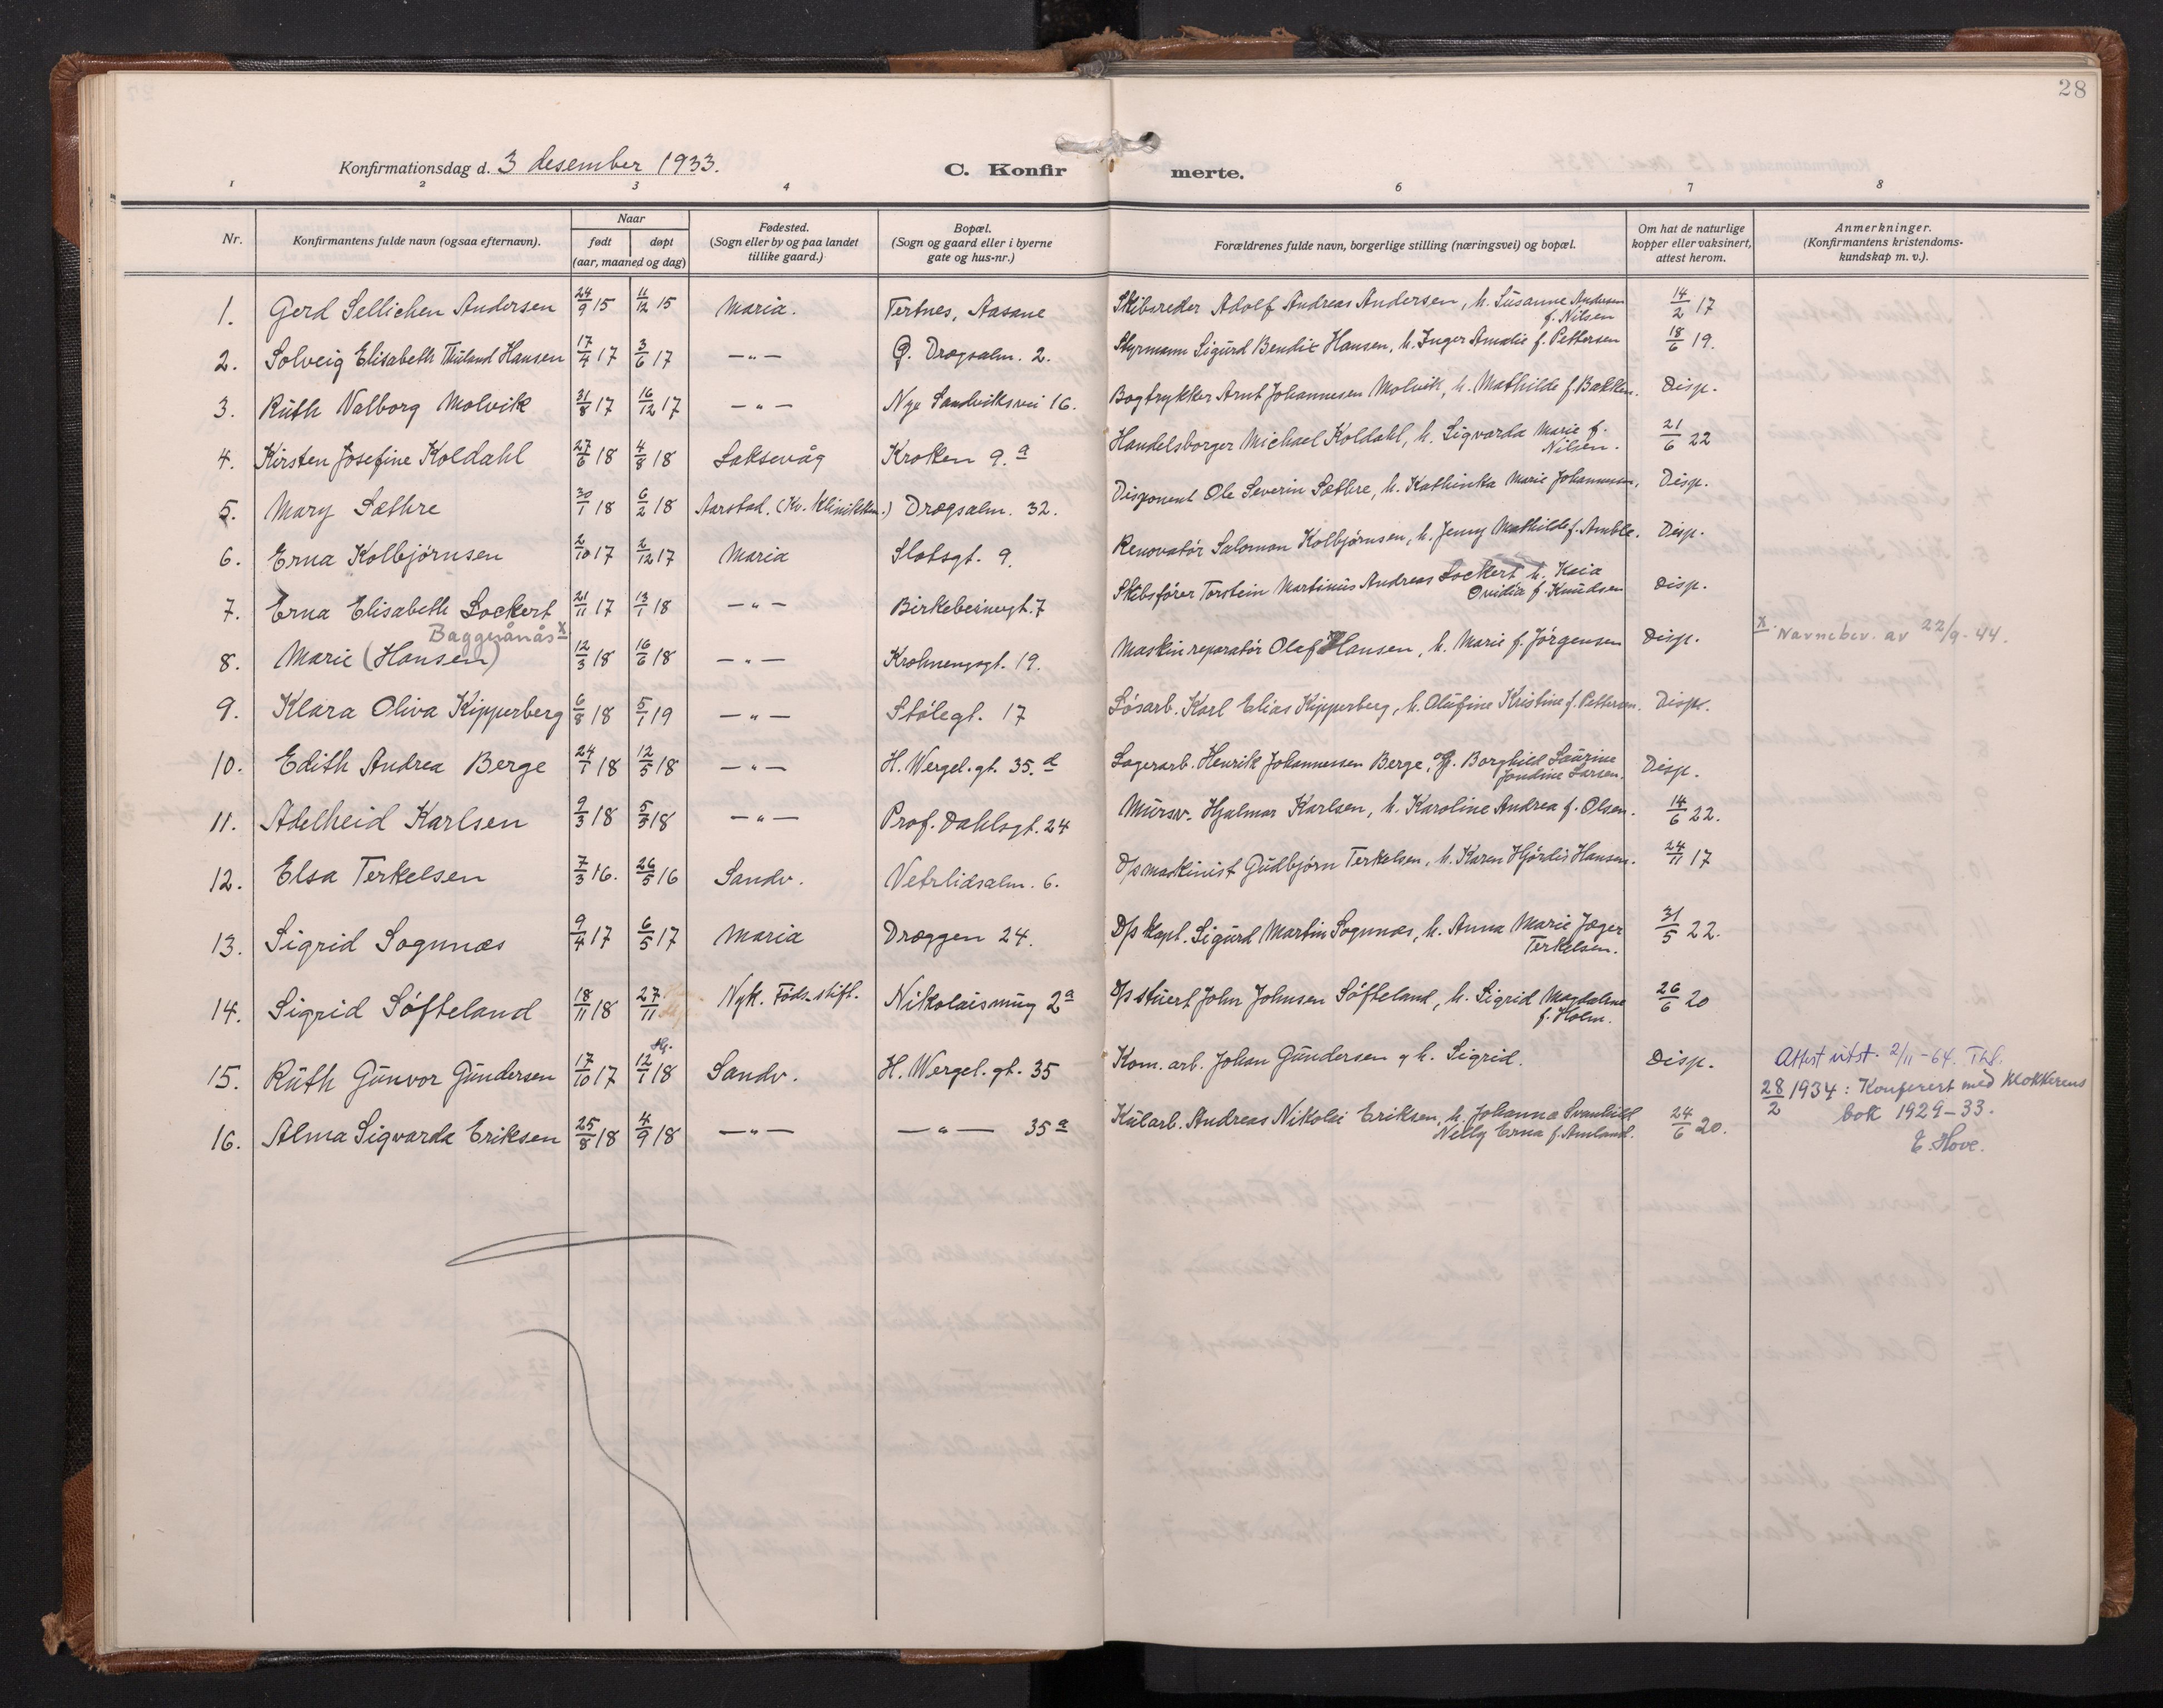 28
Konfirmationsdag d. 3 desember 1933.
C. Konfirmerte.
1 2 3 4 6 7 8
Nr. Konfirmantens fulde navn (ogsaa efternavn). Naar født døpt (aar, maaned og dag) Fødested. (Sogn eller by og paa landet tillike gaard.) Bopæl. (Sogn og gaard eller i byerne gate og hus-nr.) Forældrenes fulde navn, borgerlige stilling (næringsvei) og bopæl. Om hat de naturlige kopper eller vaksinert, attest herom. Anmerkninger. (Konfirmantens kristendoms-kundskap m. v.).
1. Gerd Sellichen Andersen 24/9 15 11/12 15 Maria. Tertnes, Aasane Skibsreder Adolf Andreas Andersen, h. Susanne Andersen f. Nilsen 14/2 17
2. Solveig Elisabeth Thuland Hansen 17/4 17 3/6 17 —"— Ø. Drægsalm. 2. Styrmann Sigurd Bendix Hansen, h. Inger Amalie f. Pettersen 18/6 19.
3. Ruth Valborg Molvik 31/8 17 16/12 17 —"— Nye Sandviksvei 16. Bogtrykker Arnt Johannesen Molvik, h. Mathilde f. Bakken. Disp.
4. Kirsten Josefine Koldahl 27/6 18 4/8 18 Laksevåg Kroken 9.a Handelsborger Michael Koldahl, h. Sigvarda Marie f. Nilsen. 21/6 22
5. Mary Sæthre 30/1 18 6/2 18 Aarstad. (Kv. Klinikken.) Drægsalm. 32. Disponent Ole Severin Sæthre, h. Kathinka Marie Johannesen. Disp.
6. Erna Kolbjørnsen 2/10 17 2/12 17 Maria Slotsgt. 9. Renovatör Salomon Kolbjørnsen, h. Jenny Mathilde f. Amble. Disp.
7. Erna Elisabeth Lockert 21/11 17 13/1 18 —"— Birkebeinergt. 7 Skibsfører Torstein Martinus Andreas Lockert h. Kaia Ovidia f. Knudsen Disp.
Baggrånås x
8. Marie (Hansen) 12/3 18 16/6 18 —"— Krohnengsgt. 19. Maskinreparatör Olaf Hansen, h. Marie f. Jörgensen Disp. x. Navnebev. av 22/9-44.
9. Klara Oliva Kipperberg 6/8 18 5/1 19 —"— Stölegt. 17 Løsarb. Karl Elias Kipperberg, h. Olufine Kristine f. Pettersen. Disp.
10. Edith Andrea Berge 24/1 18 12/5 18 —"— H. Wergel. gt. 35.d Lagerarb. Henrik Johannessen Berge, og Borghild Laurine Jondine Larsen. Disp.
11. Adelheid Karlsen 9/3 18 5/5 18 —"— Prof. Dahlsgt. 24 Mursv. Hjalmar Karlsen, h. Karoline Andrea f. Olsen. 14/6 22.
12. Elsa Terkelsen 7/3 16. 26/5 16 Sandv. Vetrlidsalm. 6. D/s maskinist Gudbjørn Terkelsen, h. Karen Hjördis Hansen. 24/11 17
13. Sigrid Sognnæs 9/4 17 6/5 17 Maria Dræggen 24. D/s kapt. Sigurd Martin Sognnæs, h. Anna Marie Jæger Terkelsen. 31/5 22.
14. Sigrid Söfteland 18/11 18 27/11 Nyk. Föds.stift. Nikolaismug 2a D/s stuert John Johnsen Söfteland, h. Sigrid Magdalene f. Holm. 26/6 20
15. Ruth Gunvor Gundersen 17/10 17 Hj. 12/1 18 Sandv. H. Wergel. gt. 35 Kom. arb. Johan Gundersen og h. Sigrid. Disp. Attest utst. 2/11-64. Thf.
28/2 1934: Konferert med klokkerens bok 1929-33.
E. Hove.
16. Alma Sigvarda Eriksen 25/8 18 4/9 18 —"— —"— 35a Kularb. Andreas Nikolai Eriksen, h. Johanna Svanhild Nelly Erna f. Amland. 24/6 20.